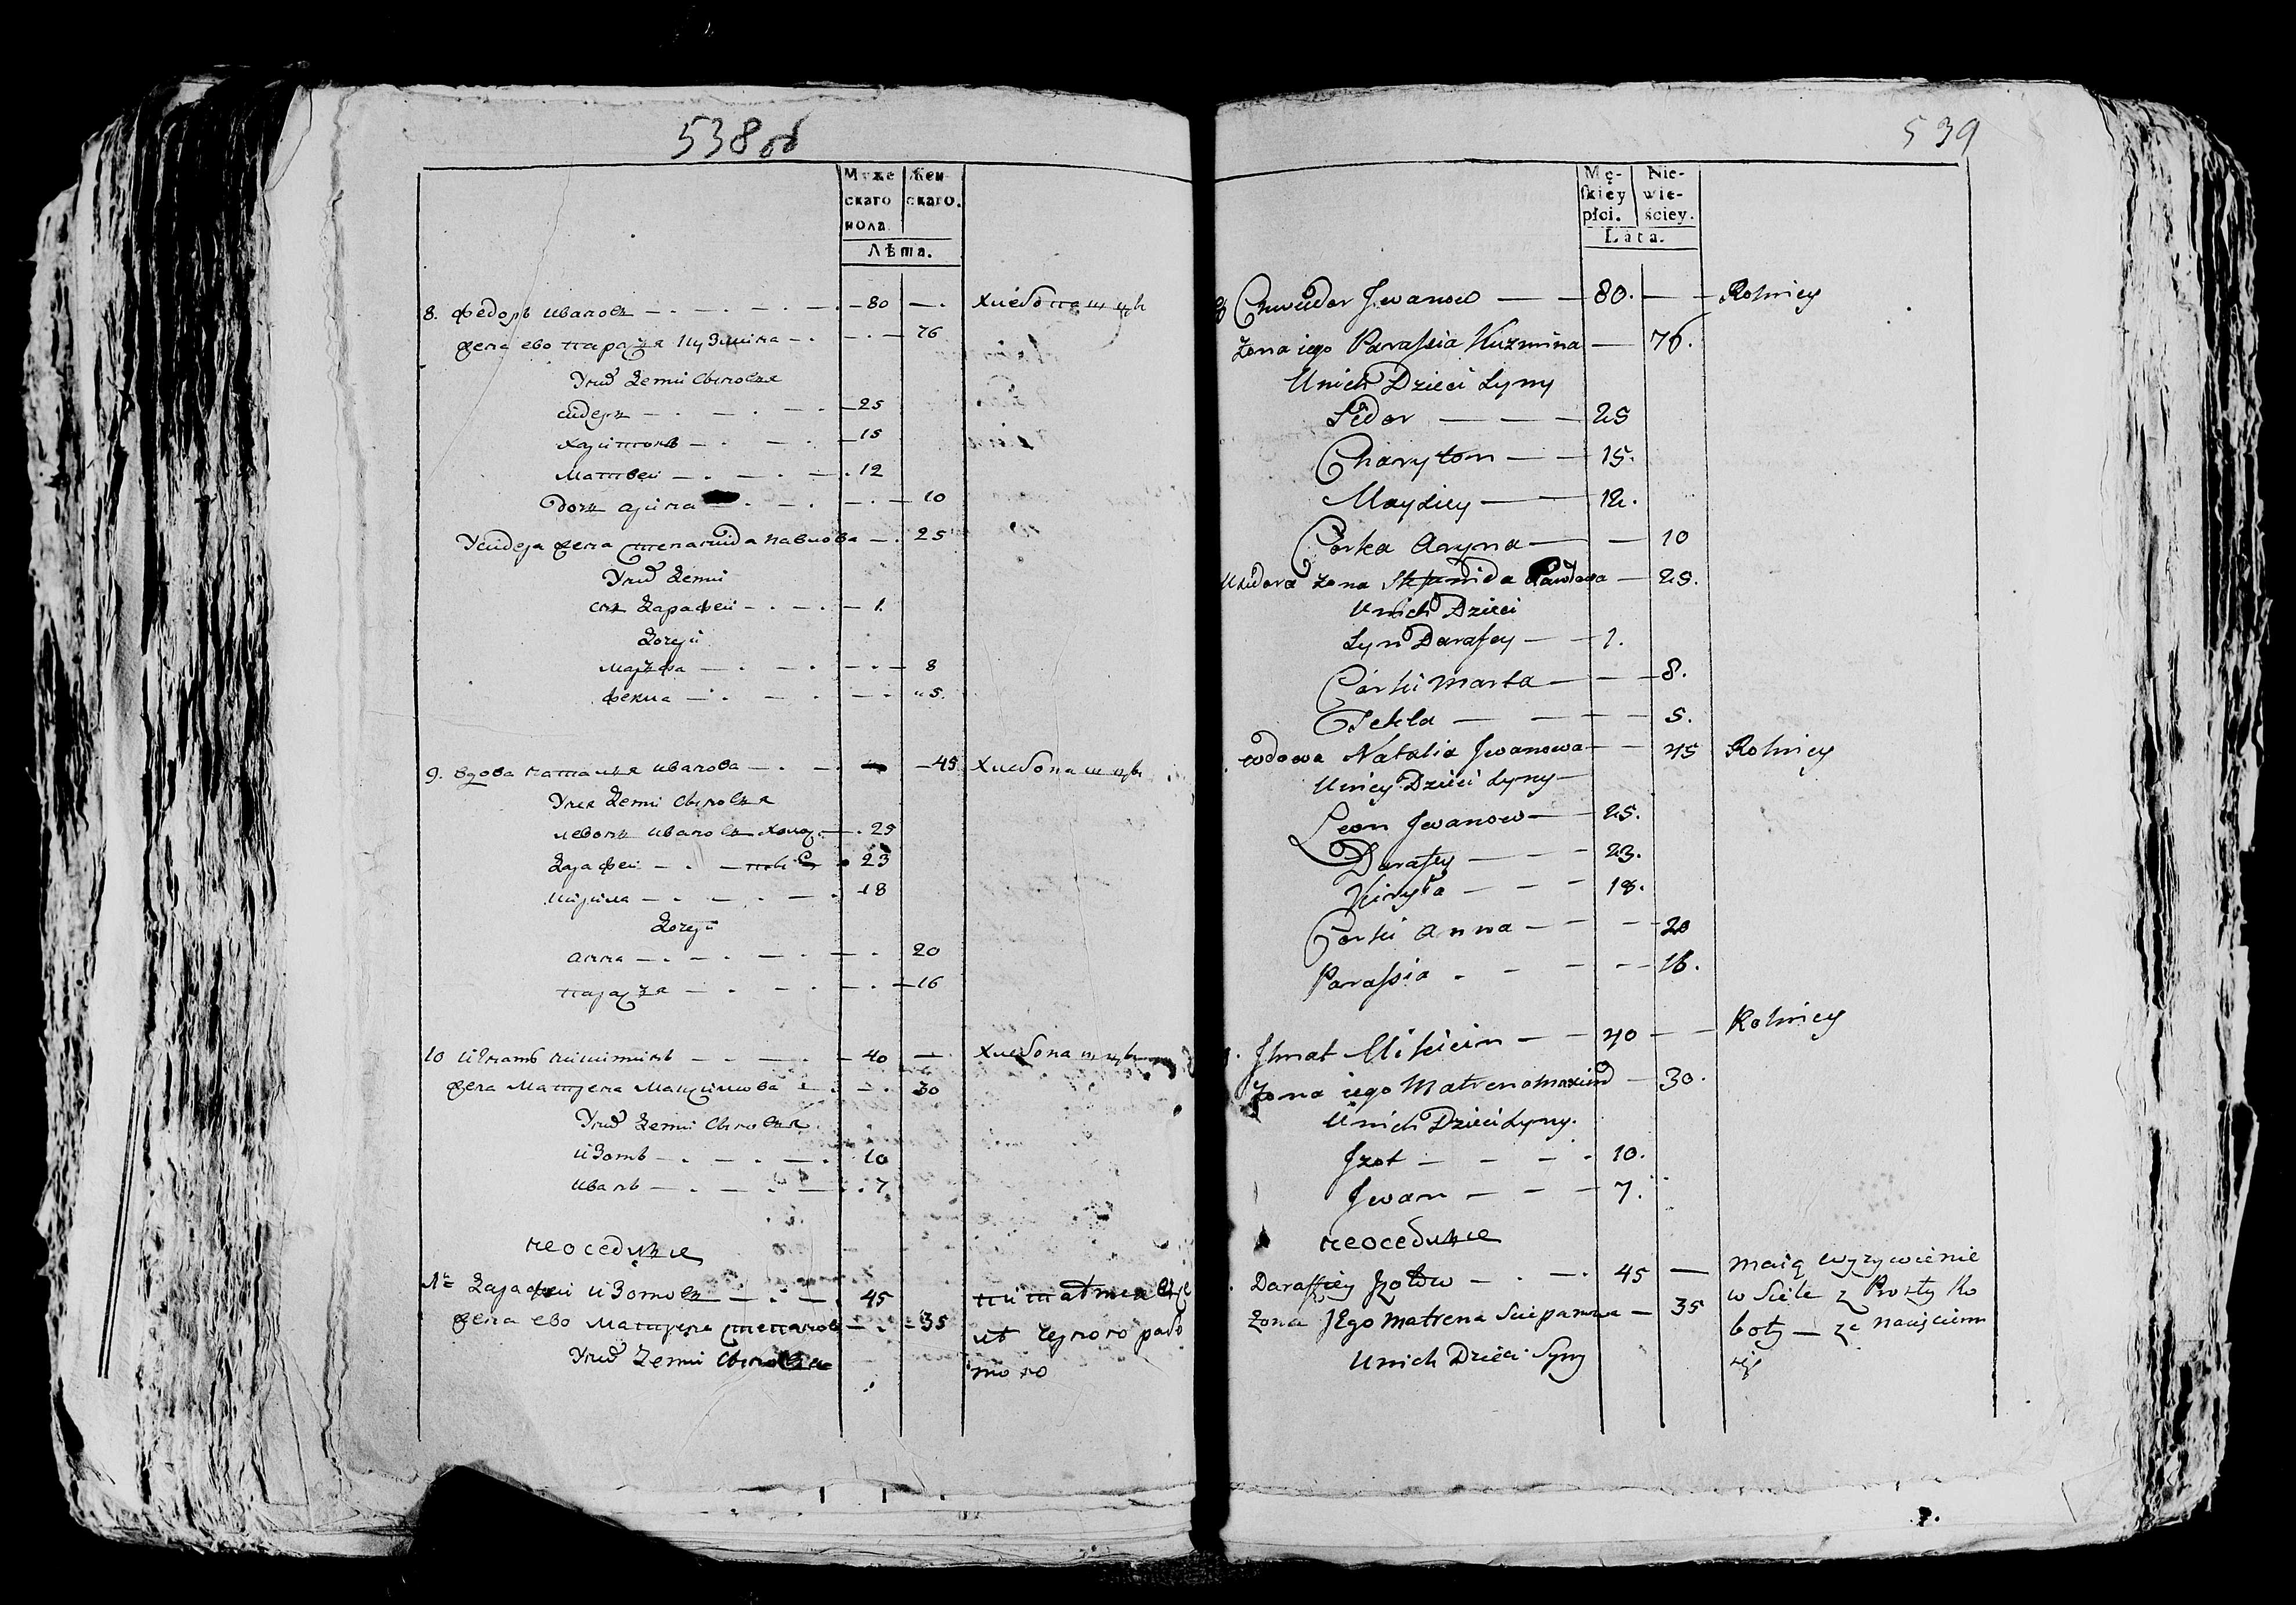 538 об
Муже
скаго
пола.
Жен
скаго.
Лѣта.
8. федоръ ивановъ — 80 — хлебопашцы
жена ево парасья кузмина — 76
у них дети сыновья
сидоръ — 25
харитонъ — 15
Матвей — 12
дочь арина — 10
у сидора жена степанида павлова — 25
у них дети
сын дарафей — 1
дочери
марфа — 8
фекла — 5.
9. вдова наталья иванова — 45 хлебопашцы
у нея дети сыновья
левонъ ивановъ — 25
дарафей — 23
кирила — 18
дочери
анна — 20
парасья — 16
10 игнатъ никитинъ — 40 — хлебопашцы
жена матрена максимова — 30
у них дети сыновья
изотъ — 10
иванъ — 7
неоседлые
дарафеи изотовъ — 45 питаться
жена ево матрена степанов — 35 черного рабо
у них дети сыновья
539
Mę-
ſkiey
płci.
Nie-
wie-
ściey.
Lata.
Chwiedor Jwanow — 80. — Rolnicy
żona iego Paraſsia Kuzmina — 76.
U nich Dzieci Syny
Sidor — 25
Charyton — 15.
Mayziey — 12.
Córka Aryna — 10
U Sidora żona Stepanida Pawłowa — 25.
U nich Dzieci
Syn Daraſey — 1.
Córki Marta — 8.
Tekla — 5.
wdowa Natalia Jwanowa — 45 Rolnicy
U niey Dzieci Syny —
Leon Jwanow — 25.
Daraſey — 23.
Kiryła — 18.
Córki Anna — 20
Paraſsia — 16.
Jhnat Mikicin — 40 — Rolnicy
żona iego Matrena Maxim — 30.
U nich Dzieci Syny.
Jzot — 10.
Jwan — 7.
неоседлые
Daraſiey Jzotow — 45 — maią wyzywienie
żona Jego Matrena Sciepanowa — 35 w Siele z Prosty Ro
U nich Dzieci Syny boty —